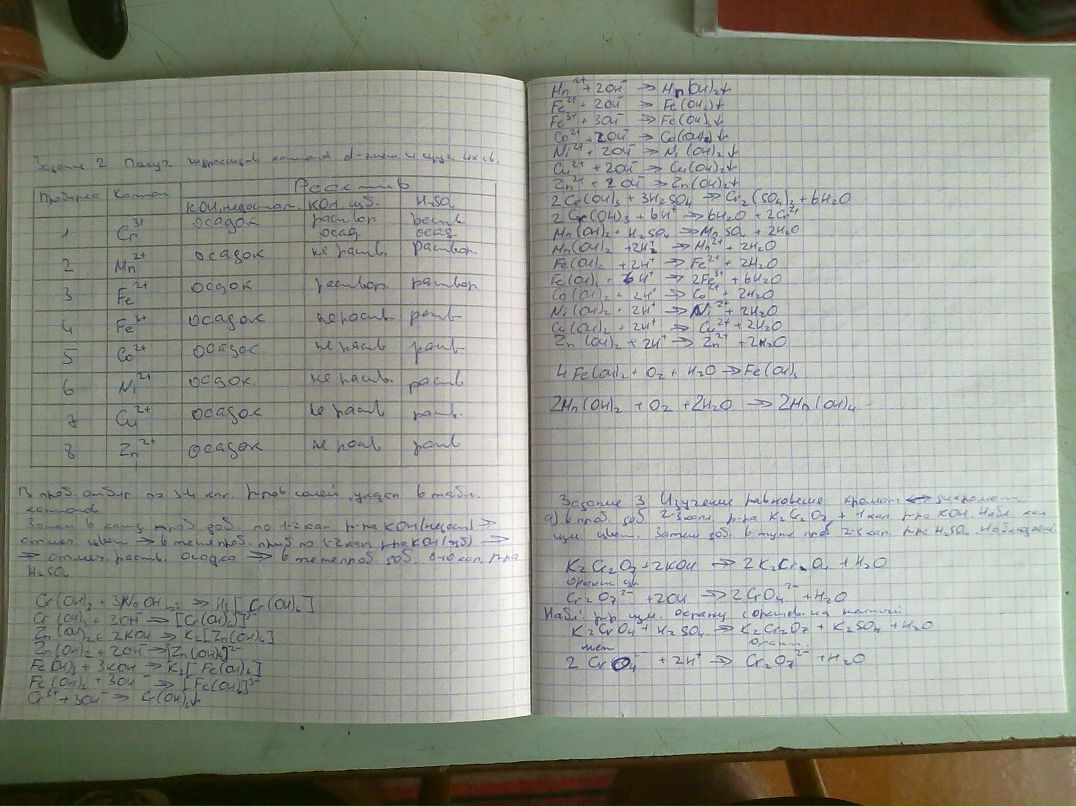 Задание 2 Получ. гидроксидов катион. d-элем и изуч. их св.
Пробирка Катион Реактив
KOH, недостат. KOH, изб. H₂SO₄
1 Cr³⁺ осадок раствор осад. раств осад.
2 Mn²⁺ осадок не раств. раствор.
3 Fe²⁺ осдок раствор раствор
4 Fe³⁺ осадок не раств раств
5 Co²⁺ осадок не раств раств
6 Ni²⁺ осадок. не раств. раств
7 Cu²⁺ осадок не раств раств.
8 Zn²⁺ осадок не раств раств
В проб. отбир. по 3-4 кап. р-ров солей, указан в табл.
катионов.
Затем в кажд проб доб. по 1-2 кап. р-ра KOH (недост) →
отмеч. цвет → в те же проб. приб по 1-2 кап. р-ра KOH (изб) →
→ отмеч. раств. осадка → в те же проб. доб. 8-10 кап. р-ра
H₂SO₄
Cr(OH)₃ + 3NaOH → [Cr(OH)₆]
Cr(OH)₃ + 3OH⁻ → [Cr(OH)₆]³⁻
Zn(OH)₂ + 2KOH → K₂[Zn(OH)₄]
Zn(OH)₂ + 2OH⁻ → [Zn(OH)₄]²⁻
Fe(OH)₃ + 3KOH → K₃[Fe(OH)₆]
Fe(OH)₂ + 3OH⁻ → [Fe(OH)₆]³⁻
Cr³⁺ + 3OH⁻ → Cr(OH)₃↓
Mn²⁺ + 2OH⁻ → Mn(OH)₂↓
Fe²⁺ + 2OH⁻ → Fe(OH)₂↓
Fe³⁺ + 3OH⁻ → Fe(OH)₃↓
Co²⁺ + 2OH⁻ → Co(OH)₂↓
Ni²⁺ + 2OH⁻ → Ni(OH)₂↓
Cu²⁺ + 2OH⁻ → Cu(OH)₂↓
Zn²⁺ + 2OH⁻ → Zn(OH)₂↓
2Cr(OH)₃ + 3H₂SO₄ → Cr₂(SO₄)₃ + 6H₂O
2Cr(OH)₃ + 6H⁺ → 6H₂O + 2Cr³⁺
Mn(OH)₂ + H₂SO₄ → MnSO₄ + 2H₂O
Mn(OH)₂ + 2H⁺ → Mn²⁺ + 2H₂O
Fe(OH)₂ + 2H⁺ → Fe²⁺ + 2H₂O
Fe(OH)₃ + 6H⁺ → 2Fe³⁺ + 6H₂O
Co(OH)₂ + 2H⁺ → Co²⁺ + 2H₂O
Ni(OH)₂ + 2H⁺ → Ni²⁺ + 2H₂O
Cu(OH)₂ + 2H⁺ → Cu²⁺ + 2H₂O
Zn(OH)₂ + 2H⁺ → Zn²⁺ + 2H₂O
4Fe(OH)₂ + O₂ + H₂O → Fe(OH)₃
2Mn(OH)₂ + O₂ + 2H₂O → 2Mn(OH)₄
Задание 3 Изучение равновесие хромат ↔ дихромат
а) в проб. доб. 2-3 капл. р-ра K₂Cr₂O₇ + 1 кап р-ра KOH. Набл. как
изм. цвет. Затем доб. в ту же проб 2-3 кап. р-ра H₂SO₄. Наблюдаем.
K₂Cr₂O₇ + 2KOH → 2K₂CrO₄ + H₂O
оранж.
Cr₂O₇²⁻ + 2OH → 2CrO₄²⁻ + H₂O
Набл. р-р изм. окраску с оранжев. на желтый
K₂CrO₄ + H₂SO₄ → K₂Cr₂O₇ + K₂SO₄ + H₂O
желт оранж.
2CrO₄⁻ + 2H⁺ → Cr₂O₇²⁻ + H₂O